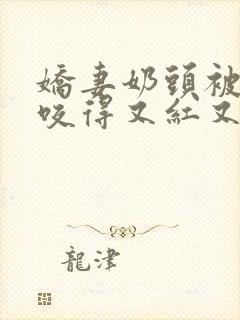 嬌妻奶頭被
咬得又紅又
龍津